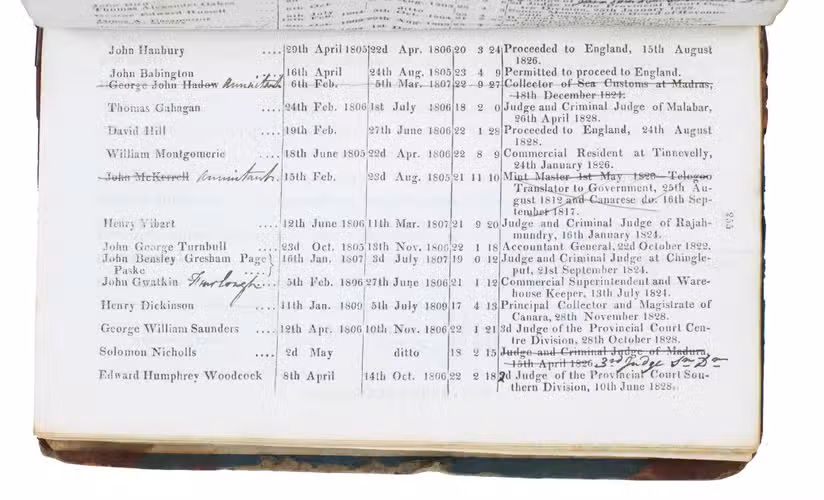 John Hanbury .... 29th April 1805 22d Apr. 1806 20 3 24 Proceeded to England, 15th August
1826.
John Babington 16th April 24th Aug. 1805 23 4 9 Permitted to proceed to England.
George John Hadow Annuitant. 6th Feb. 5th Mar. 1807 22 9 27 Collector of Sea Customs at Madras,
18th December 1824.
Thomas Gahagan .... 24th Feb. 1806 1st July 1806 18 2 0 Judge and Criminal Judge of Malabar,
26th April 1828.
David Hill .... 19th Feb. 27th June 1806 22 1 28 Proceeded to England, 24th August
1828.
William Montgomerie .... 18th June 1805 22d Apr. 1806 22 8 9 Commercial Resident at Tinnevelly,
24th January 1826.
John McKerrell Annuitant. 15th Feb. 23d Aug. 1805 21 11 10 Mint Master 1st May 1826 Telogoo
Translator to Government, 25th Au-
gust 1812 and Canarese do. 16th Sep-
tember 1817.
Henry Vibart .... 12th June 1806 11th Mar. 1807 21 9 20 Judge and Criminal Judge of Rajah-
mundry, 16th January 1824.
John George Turnbull .... 23d Oct. 1805 13th Nov. 1806 22 1 18 Accountant General, 22d October 1822.
John Bensley Gresham Page } 16th Jan. 1807 3d July 1807 19 0 12 Judge and Criminal Judge at Chingle-
Paske .... put, 21st September 1824.
John Gwatkin Furlough .... 5th Feb. 1896 27th June 1806 21 1 12 Commercial Superintendent and Ware-
house Keeper, 13th July 1824.
Henry Dickinson .... 11th Jan. 1809 5th July 1809 17 4 13 Principal Collector and Magistrate of
Canara, 28th November 1828.
George William Saunders .... 12th Apr. 1806 10th Nov. 1806 22 1 21 3d Judge of the Provincial Court Cen-
tre Division, 28th October 1828.
Solomon Nicholls .... 2d May ditto 18 2 15 Judge and Criminal Judge of Madura,
15th April 1826. 3rd Judge Sn Dn
Edward Humphrey Woodcock 8th April 14th Oct. 1806 22 2 18 2d Judge of the Provincial Court Sou-
thern Division, 10th June 1828.